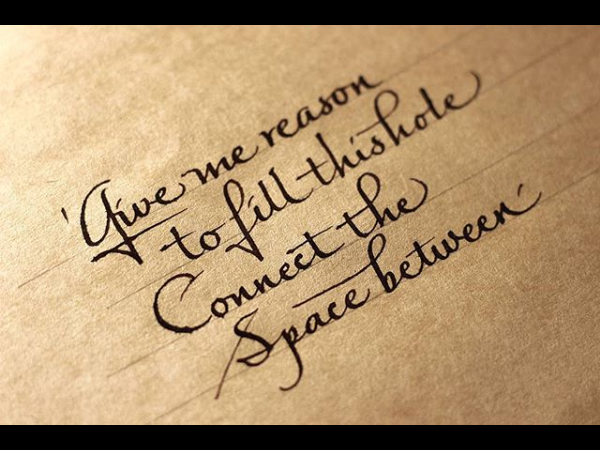 'Give me reason
to fill this hole
Connect the
Space between'